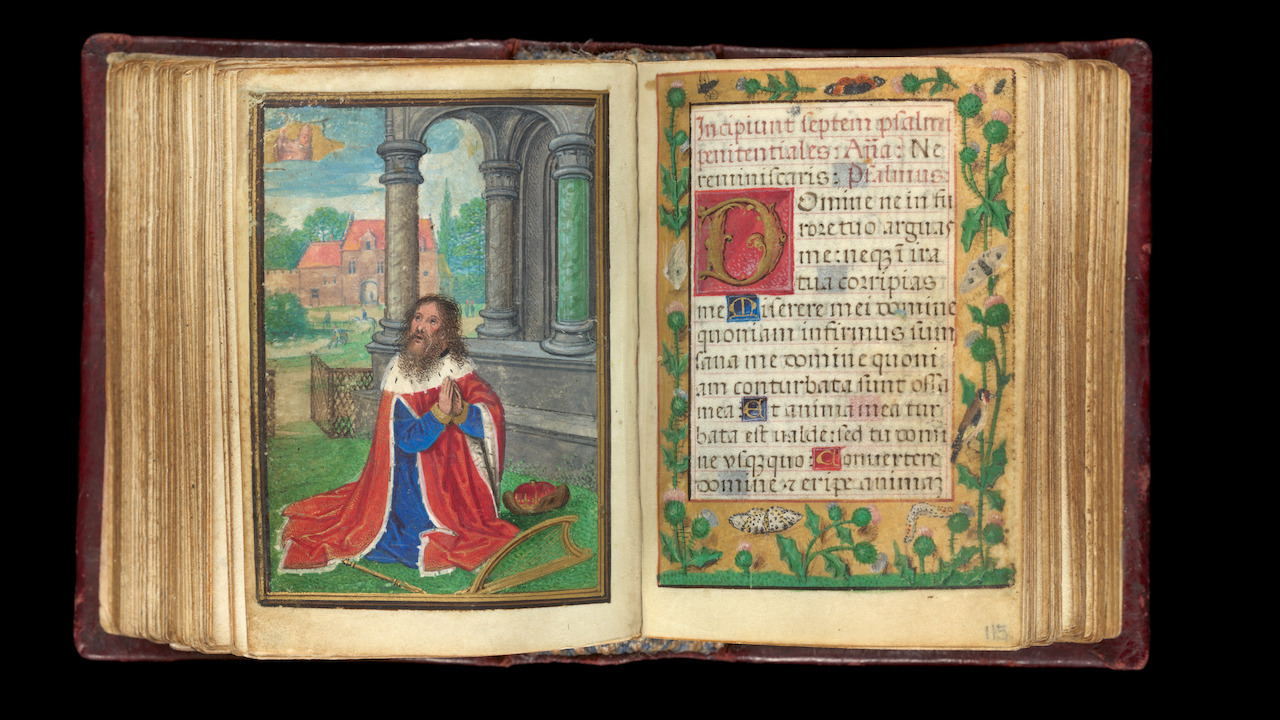 Incipiunt septem psalmi
penitentiales: Aña: Ne
reminiscaris: Psalmus:
Domine ne in fu
rore tuo arguas
me: neqȝ ī ira
tua corripias
me Miserere mei domine
quoniam infirmus sum
sana me domine quoni
am conturbata sunt ossa
mea: Et anima mea tur
bata est valde: sed tu domi
ne vsqȝ quo: Conuertere
domine ⁊ eripe animaȝ
115